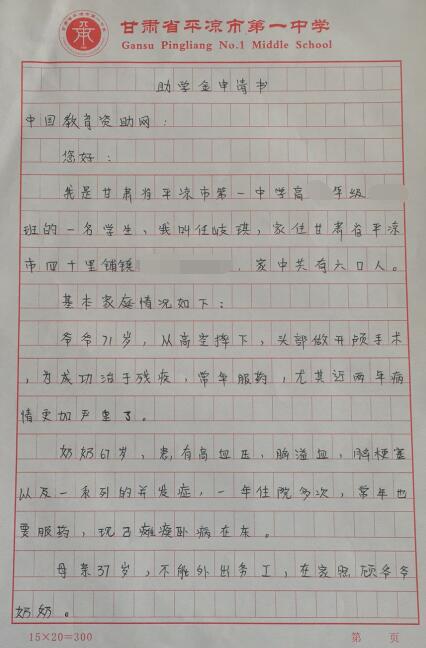 甘肃省平凉市第一中学
Gansu Pingliang No.1 Middle School
助学金申请书
中国教育资助网：
您好：
我是甘肃省平凉市第一中学高 年级
班的一名学生，我叫任岐琪，家住甘肃省平凉
市四十里铺镇 ，家中共有六口人。
基本家庭情况如下：
爷爷71岁，从高空摔下，头部做开颅手术
，为成功治于残疾，常年服药，尤其近两年病
情更加严重了。
奶奶67岁，患有高血压，脑溢血，脑梗塞
以及一系列的并发症，一年住院多次，常年也
要服药，现已瘫痪卧病在床。
母亲37岁，不能外出务工，在家照顾爷爷
奶奶。
15×20=300
第 页